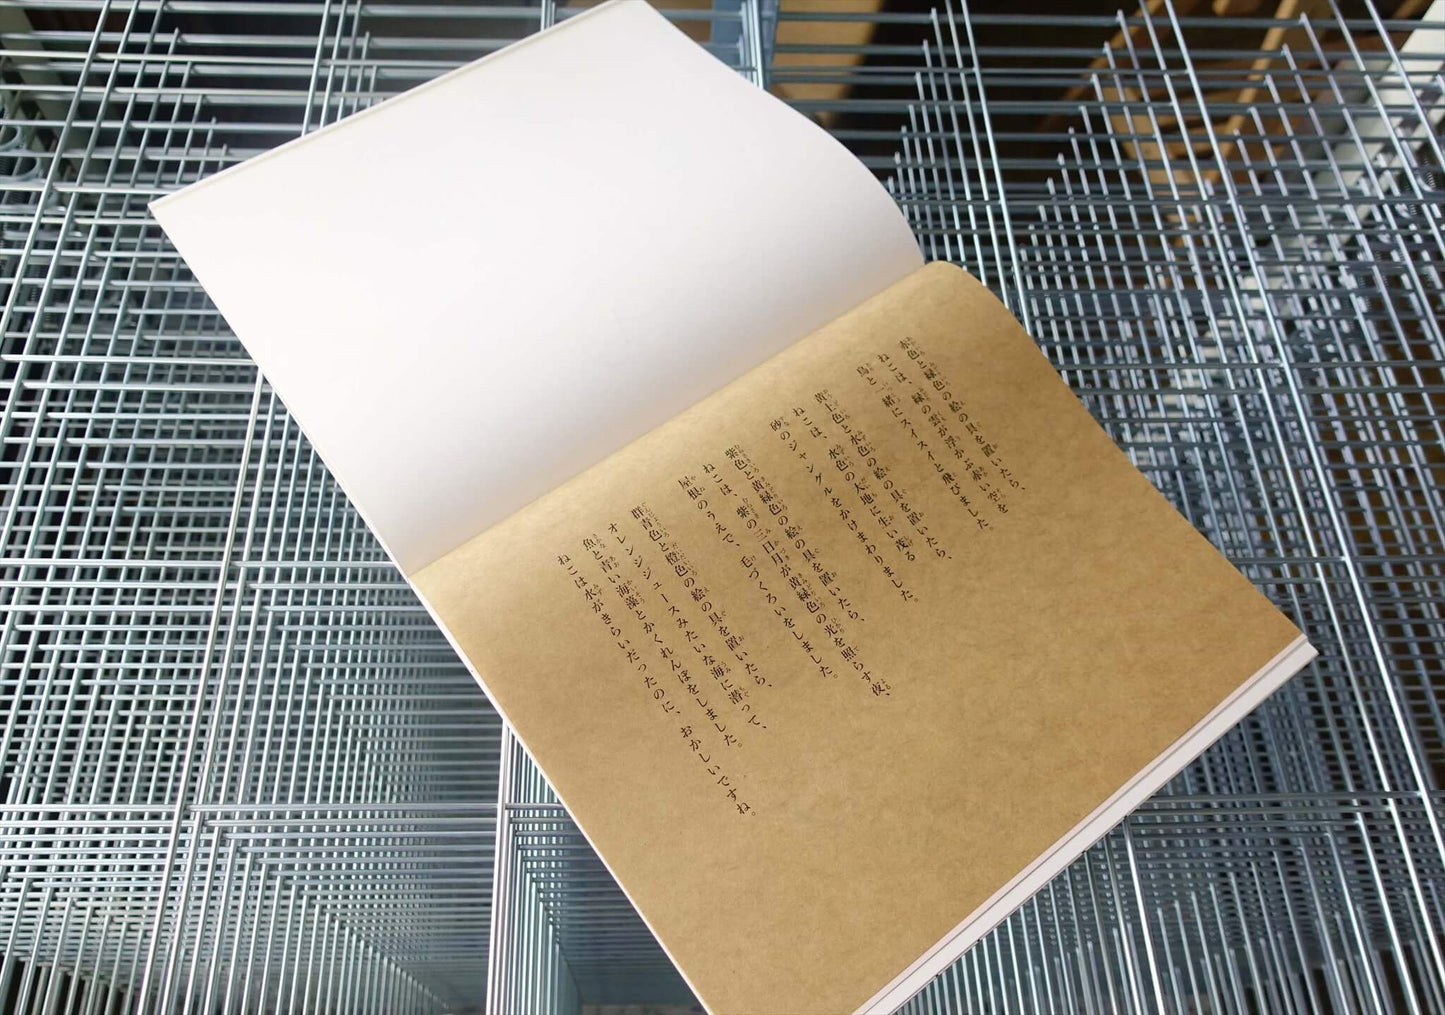 赤色と緑色の絵の具を置いたら、
ねこは、緑の雲が浮かぶ赤い空を
鳥と一緒にスイスイと飛びました。
黄土色と水色の絵の具を置いたら、
ねこは、水色の大地に生い茂る
砂のジャングルをかけまわりました。
紫色と黄緑色の絵の具を置いたら、
ねこは、紫の三日月が黄緑色の光を照らす夜、
屋根のうえで、毛づくろいをしました。
群青色と橙色の絵の具を置いたら、
オレンジジュースみたいな海に潜って、
魚と青い海藻とかくれんぼをしました。
ねこは水がきらいだったのに、おかしいですね。